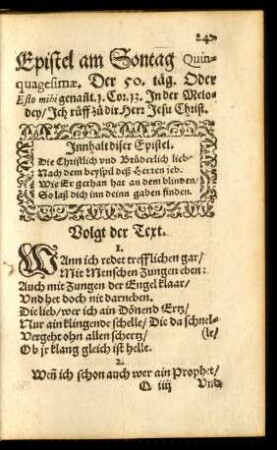 24.
Epistel am Sontag Quin-
quagesimæ. Der 50. tåg. Oder
Esto mihi genañt. 1. Cor. 13. In der Melo-
dey/ Ich rüff zů dir Herr Jesu Christ.
Innhalt diser Epistel.
Die Christlich vnd Brüderlich lieb/
Nach dem beyspil deß Herzen jeb.
Wie Er gethan hat an dem blinden/
So laß dich inn deinn gaben finden.
Volgt der Text.
1.
WAnn ich redet trefflichen gar/
Mit Menschen Zungen eben:
Auch mit Zungen der Engel klaar/
Vnd het doch nit darneben.
Die lieb/ wer ich ain Dönend Ertz/
Nur ain klingende schelle/ Die da schnel-
Vergeht ohn allen schertz/ (le/
Ob jr klang gleich ist helle.
2.
Weñ ich schon auch wer ain Prophet/
Q iiij Vnd